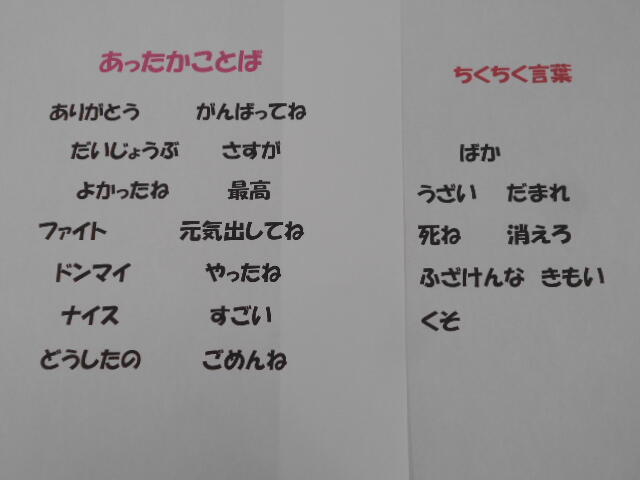 あったかことば
ありがとう がんばってね
だいじょうぶ さすが
よかったね 最高
ファイト 元気出してね
ドンマイ やったね
ナイス すごい
どうしたの ごめんね
ちくちく言葉
ばか
うざい だまれ
死ね 消えろ
ふざけんな きもい
くそ